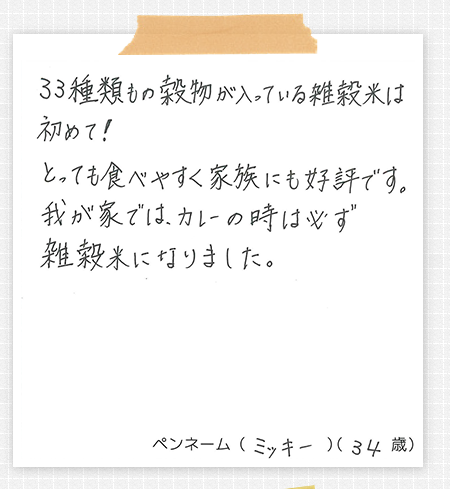 33種類もの穀物が入っている雑穀米は
初めて!
とっても食べやすく家族にも好評です。
我が家では、カレーの時は必ず
雑穀米になりました。
ペンネーム(ミッキー)(34歳)